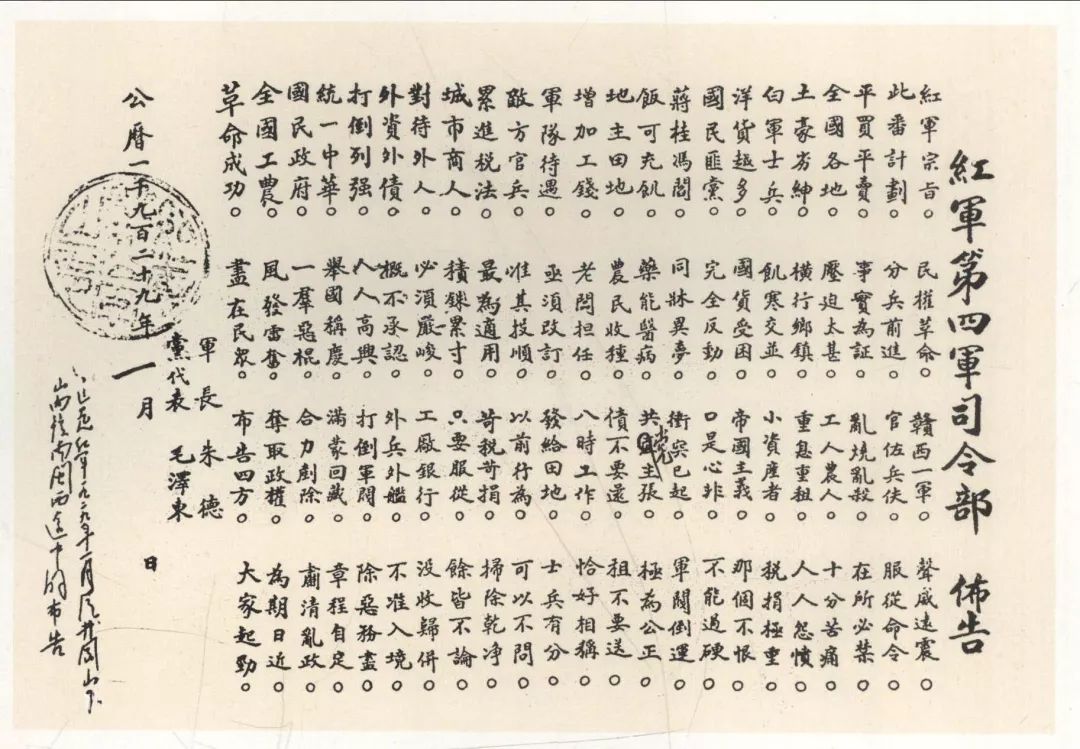 紅軍第四軍司令部 佈告
紅軍宗旨。民權革命。贛西一軍。聲威遠震。
此番計劃。分兵前進。官佐兵伕。服從命令。
平買平賣。事實為証。亂燒亂殺。在所必禁。
全國各地。壓迫太甚。工人農人。十分苦痛。
土豪劣紳。橫行鄉鎮。重息重租。人人怨憤。
白軍士兵。飢寒交並。小資產者。稅捐極重。
洋貨越多。國貨受困。帝國主義。那個不恨。
國民匪黨。完全反動。口是心非。不能過硬。
蔣桂馮閻。同牀異夢。衝突已起。軍閥倒運。
飯可充飢。藥能醫病。共党主張。極為公正。
地主田地。農民收種。債不要還。租不要送。
增加工錢。老闆担任。八時工作。恰好相稱。
軍隊待遇。亟須改訂。發給田地。士兵有分。
敵方官兵。准其投順。以前行為。可以不問。
累進税法。最為適用。苛税苛捐。掃除乾净。
城市商人。積銖累寸。只要服從。餘皆不論。
對待外人。必須嚴峻。工廠銀行。没收歸併。
外資外債。概不承認。外兵外艦。不准入境。
打倒列强。人人高興。打倒軍閥。除惡務盡。
統一中華。舉國稱慶。滿蒙回藏。章程自定。
國民政府。一羣惡棍。合力剷除。肅清亂政。
全國工農。風發雷奮。奪取政權。為期日近。
革命成功。盡在民眾。布告四方。大家起勁。
軍長 朱德
黨代表 毛澤東
公曆一千九百二十九年一月 日
红军一九二九年一月從井冈山下
山向赣南闽西途中的布告